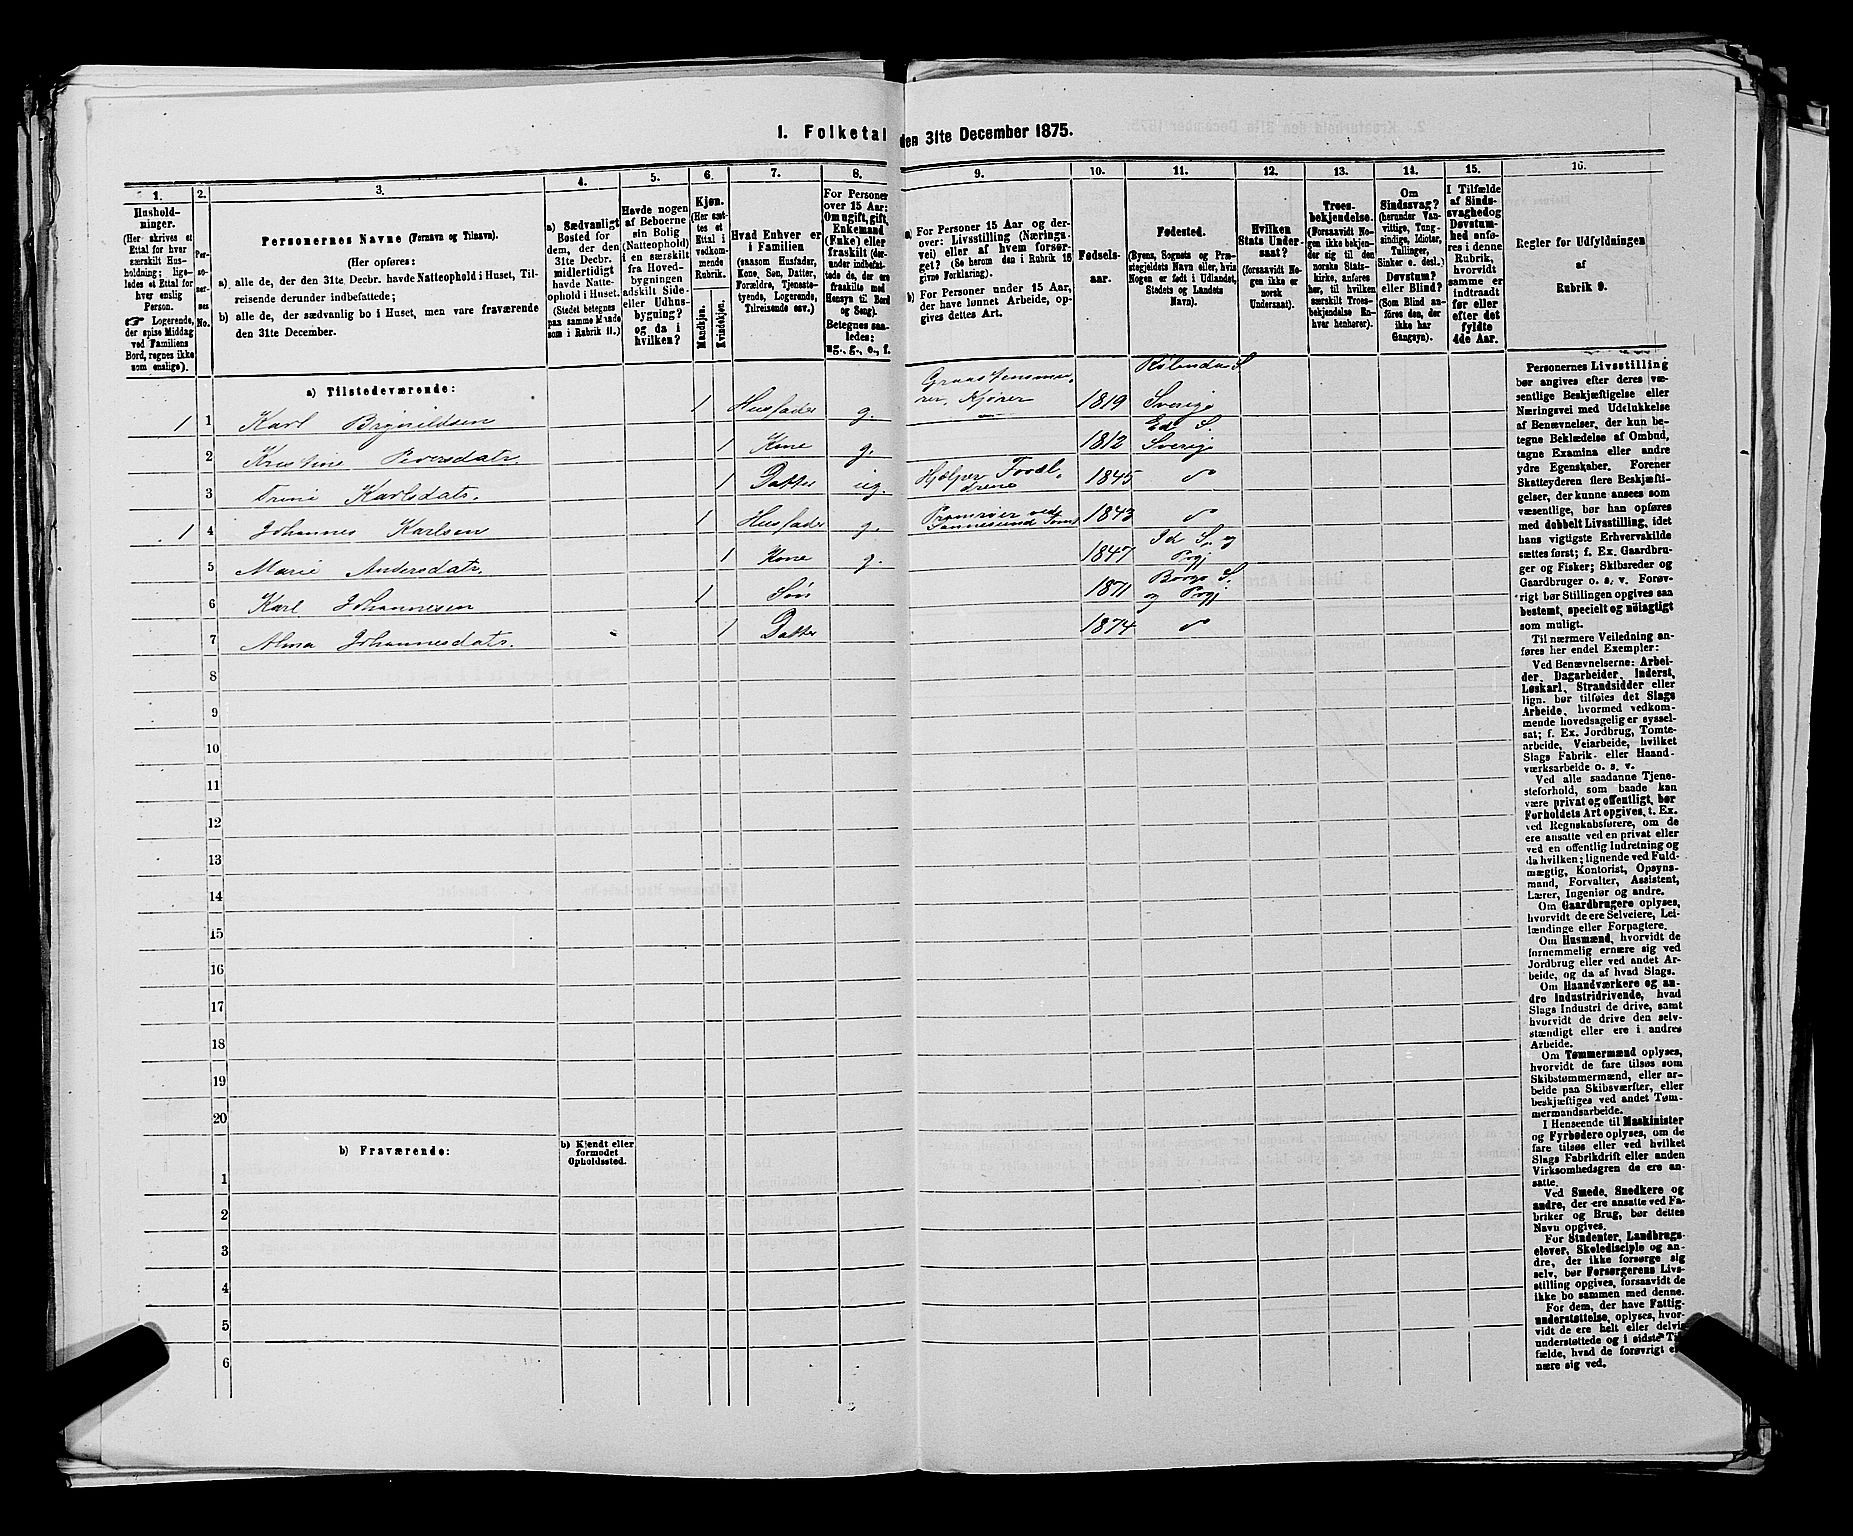 1. Folketal den 31te December 1875.
1.
Hushold-
ninger.
(Her skrives et
Ettal for hver
særskilt Hus-
holdning; lige-
ledes et Ettal for
hver enslig
Person.
☞ Logerende,
der spise Middag
ved Familiens
Bord, regnes ikke
som enslige).
2.
Per-
so-
ner-
nes
No.
3.
Personernes Navne (Fornavn og Tilnavn).
(Her opføres:
a) alle de, der den 31te Decbr. havde Natteophold i Huset, Til-
reisende derunder indbefattede;
b) alle de, der sædvanlig bo i Huset, men vare fraværende
den 31te December.
4.
a) Sædvanligt
Bosted for
dem, der den
31te Decbr.
midlertidigt
havde Natte-
ophold i Huset.
(Stedet betegnes
paa samme Maade
som i Rubrik 11.)
5.
Havde nogen
af Beboerne
sin Bolig
(Natteophold)
i en særskilt
fra Hoved-
bygningen
adskilt Side-
eller Udhus-
bygning?
og da i
hvilken?
6.
Kjøn.
(Her sæt-
tes et
Ettal i
vedkom-
mende
Rubrik.
Mandkjøn.
Kvindekjøn.
7.
Hvad Enhver er
i Familien
(saasom Husfader,
Kone, Søn, Datter,
Forældre, Tjeneste-
tyende, Logerende,
Tilreisende osv.)
8.
For Personer
over 15 Aar:
Om ugift, gift,
Enkemand
(Enke) eller
fraskilt (der-
under indbefat-
tede de, der ere
fraskilte med
Hensyn til Bord
og Seng).
Betegnes saa-
ledes:
ug., g., e., f.
9.
a) For Personer 15 Aar og der-
over: Livsstilling (Nærings-
vei) eller af hvem forsør-
get? (Se herom den i Rubrik 16
givne Forklaring).
b) For Personer under 15 Aar,
der have lønnet Arbeide, op-
gives dettes Art.
10.
Fødsels-
aar.
11.
Fødested.
(Byens, Sognets og Præ-
stegjeldets Navn eller, hvis
Nogen er født i Udlandet,
Stedets og Landets
Navn).
12.
Hvilken
Stats Under-
saat?
(forsaavidt No-
gen ikke er
norsk
Undersaat).
13.
Troes-
bekjendelse.
(Forsaavidt No-
gen ikke bekjen-
der sig til den
norske Stats-
kirke, anføres
her, til hvilken
særskilt Troes-
bekjendelse En-
hver henhører).
14.
Om
Sindssvag?
(herunder Van-
vittige, Tung-
sindige, Idioter,
Tullinger,
Sinker o. desl.)
Døvstum?
eller Blind?
(Som Blind an-
føres den, der
ikke har
Gangsyn).
15.
I Tilfælde
af Sinds-
svaghed og
Døvstum-
hed anfø-
res i denne
Rubrik,
hvorvidt
samme er
indtraadt
før eller
efter det
fyldte
4de Aar.
16.
Regler for Udfyldningen
af
Rubrik 9.
a) Tilstedeværende:
1 1 Karl Brynildsen 1 Husfader g. Kjører 1819 Sverige
2 Kristine Peversdatr. 1 Kone g. 1812 Ed S. Sverig
3 Trine Karlsdatr. 1 Datter ug. Hjælper Foræl-drene 1845 "
1 4 Johannes Karlsen 1 Husfader g. 1843 "
5 Marie Andersdatr. 1 Kone g. 1847 Id S. og Prgj
6 Karl Johannesen 1 Søn 1871 Borge S. og Prgj
7 Alma Johannesdatr. 1 Datter 1874 "
8
9
10
11
12
13
14
15
16
17
18
19
20
b) Fraværende:
b) Kjendt eller
formodet
Opholdssted.
1
2
3
4
5
6
Personernes Livsstilling
bør angives efter deres væ-
sentlige Beskjæftigelse eller
Næringsvei med Udelukkelse
af Benævnelser, der kun be-
tegne Beklædelse af Ombud,
tagne Examina eller andre
ydre Egenskaber. Forener
Skatteyderen flere Beskjæfti-
gelser, der kunne ansees som
væsentlige, bør han opføres
med dobbelt Livsstilling, idet
hans vigtigste Erhvervskilde
sættes først; f. Ex. Gaardbru-
ger og Fisker; Skibsreder og
Gaardbruger o. s. v. Forøv-
rigt bør Stillingen opgives saa
bestemt, specielt og nøiagtigt
som muligt.
Til nærmere Veiledning an-
føres her endel Exempler:
Ved Benævnelserne: Arbei-
der, Dagarbeider, Inderst,
Løskarl, Strandsidder eller
lign. bør tilføies det Slags
Arbeide, hvormed vedkom-
mende hovedsagelig er syssel-
sat; f. Ex. Jordbrug, Tomte-
arbeide, Veiarbeide, hvilket
Slags Fabrik- eller Haand-
værksarbeide o. s. v.
Ved alle saadanne Tjene-
steforhold, som baade kan
være privat og offentligt, bør
Forholdets Art opgives, t. Ex.
ved Regnskabsførere, om de
ere ansatte ved en privat eller
ved en offentlig Indretning og
da hvilken; lignende ved Fuld-
mægtig, Kontorist, Opsyns-
mand, Forvalter, Assistent,
Lærer, Ingeniør og andre.
Om Gaardbrugere oplyses,
hvorvidt de ere Selveiere, Lei-
lændinge eller Forpagtere.
Om Husmænd, hvorvidt de
fornemmelig ernære sig ved
Jordbrug eller ved andet Ar-
beide, og da af hvad Slags.
Om Haandværkere og an-
dre Industridrivende, hvad
Slags Industri de drive, samt
hvorvidt de drive den selv-
stændigt eller ere i andres
Arbeide.
Om Tømmermænd oplyses,
hvorvidt de fare tilsøs som
Skibstømmermænd, eller ar-
beide paa Skibsværfter, eller
beskjæftiges ved andet Tøm-
mermandsarbeide.
I Henseende til Maskinister
og Fyrbødere oplyses, om de
fare tilsøs eller ved hvilket
Slags Fabrikdrift eller anden
Virksomhedsgren de ere an-
satte.
Ved Smede, Snedkere og
andre, der ere ansatte ved Fa-
briker og Brug, bør dettes
Navn opgives.
For Studenter, Landbrugs-
elever, Skoledisciple og an-
dre, der ikke forsørge sig
selv, bør Forsørgerens Livs-
stilling opgives, forsaavidt de
ikke bo sammen med denne.
For dem, der have Fattig-
understøttelse, oplyses, hvor-
vidt de ere helt eller delvis
understøttede og i sidste Til-
fælde, hvad de forøvrigt er-
nære sig ved.